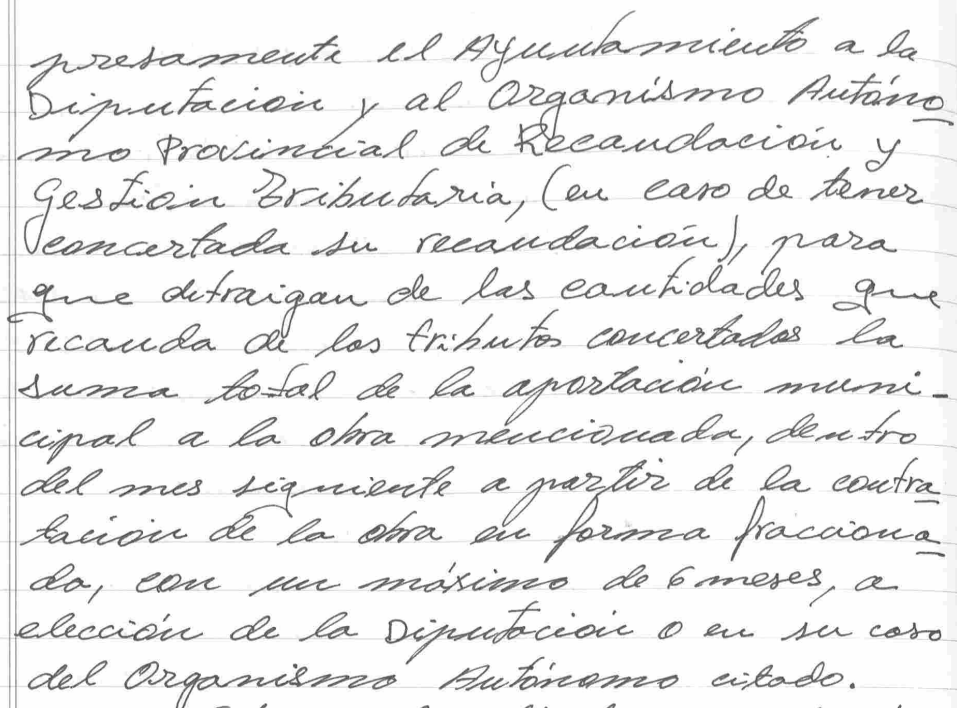 presamente el Ayuntamiento a la
Diputación y al Organismo Autóno
mo Provincial de Recaudación y
Gestión Tributaria, (en caso de tener
concertada su recaudación), para
que detraigan de las cantidades que
recauda de los tributos concertados la
suma total de la aportación muni-
cipal a la obra mencionada, dentro
del mes siguiente a partir de la contra
tación de la obra en forma fracciona
da, con un máximo de 6 meses, a
elección de la Diputación o en su caso
del Organismo Autónomo citado.